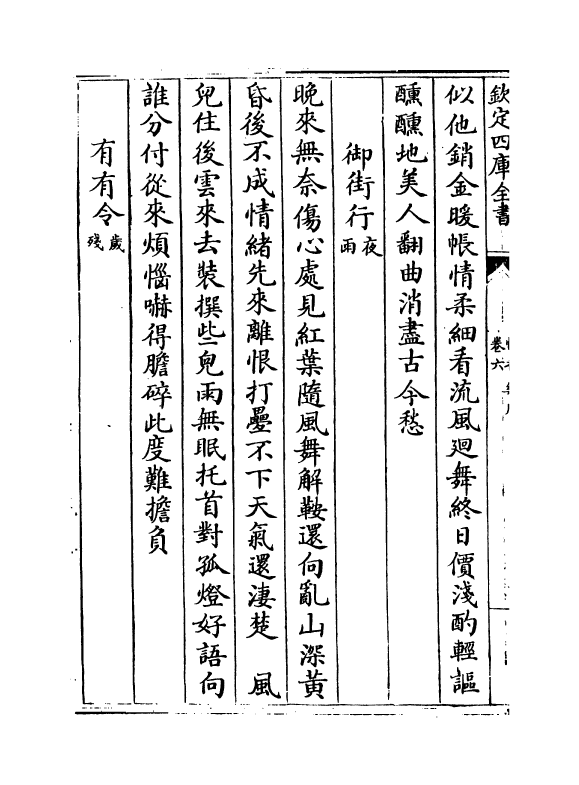 欽定四庫全書
卷六
似他銷金暖帳情柔細看流風廻舞終日價淺酌輕謳
醺醺地美人翻曲消盡古今愁
御街行夜雨
晚來無奈傷心處見紅葉隨風舞解鞍還向亂山深黃
昏後不成情緒先來離恨打疊不下天氣還淒楚 風
兒住後雲來去裝撰些兒雨無眠托首對孤燈好語向
誰分付從來煩惱嚇得膽碎此度難擔負
有有令歲殘